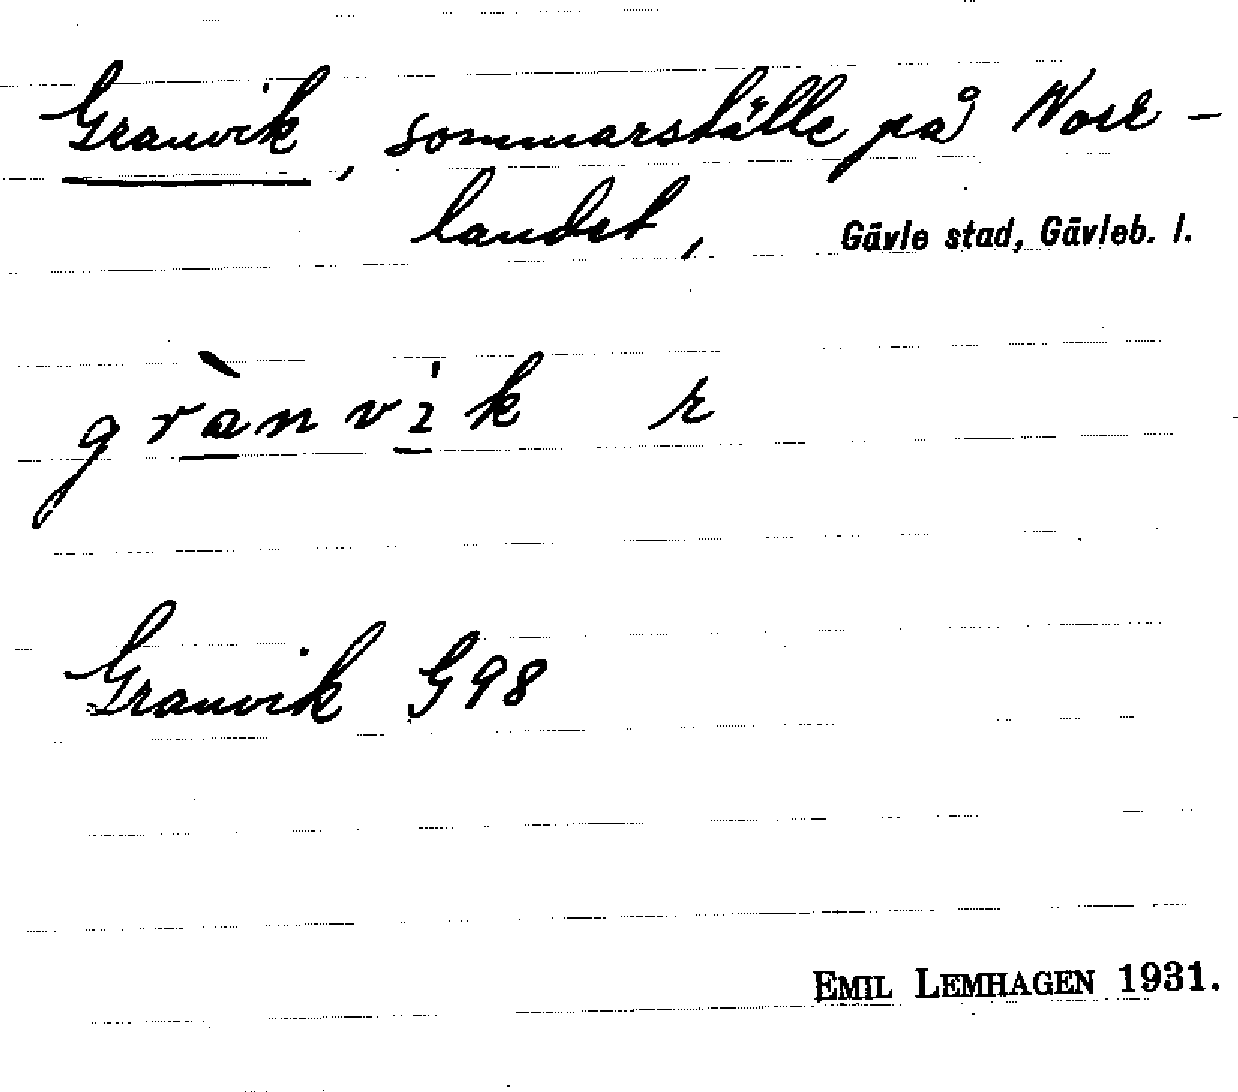 Granvik, sommarställe på Norr-
landet, Gävle stad, Gävleb. l.
grànvik r
Granvik G98
EMIL LEMHAGEN 1931.